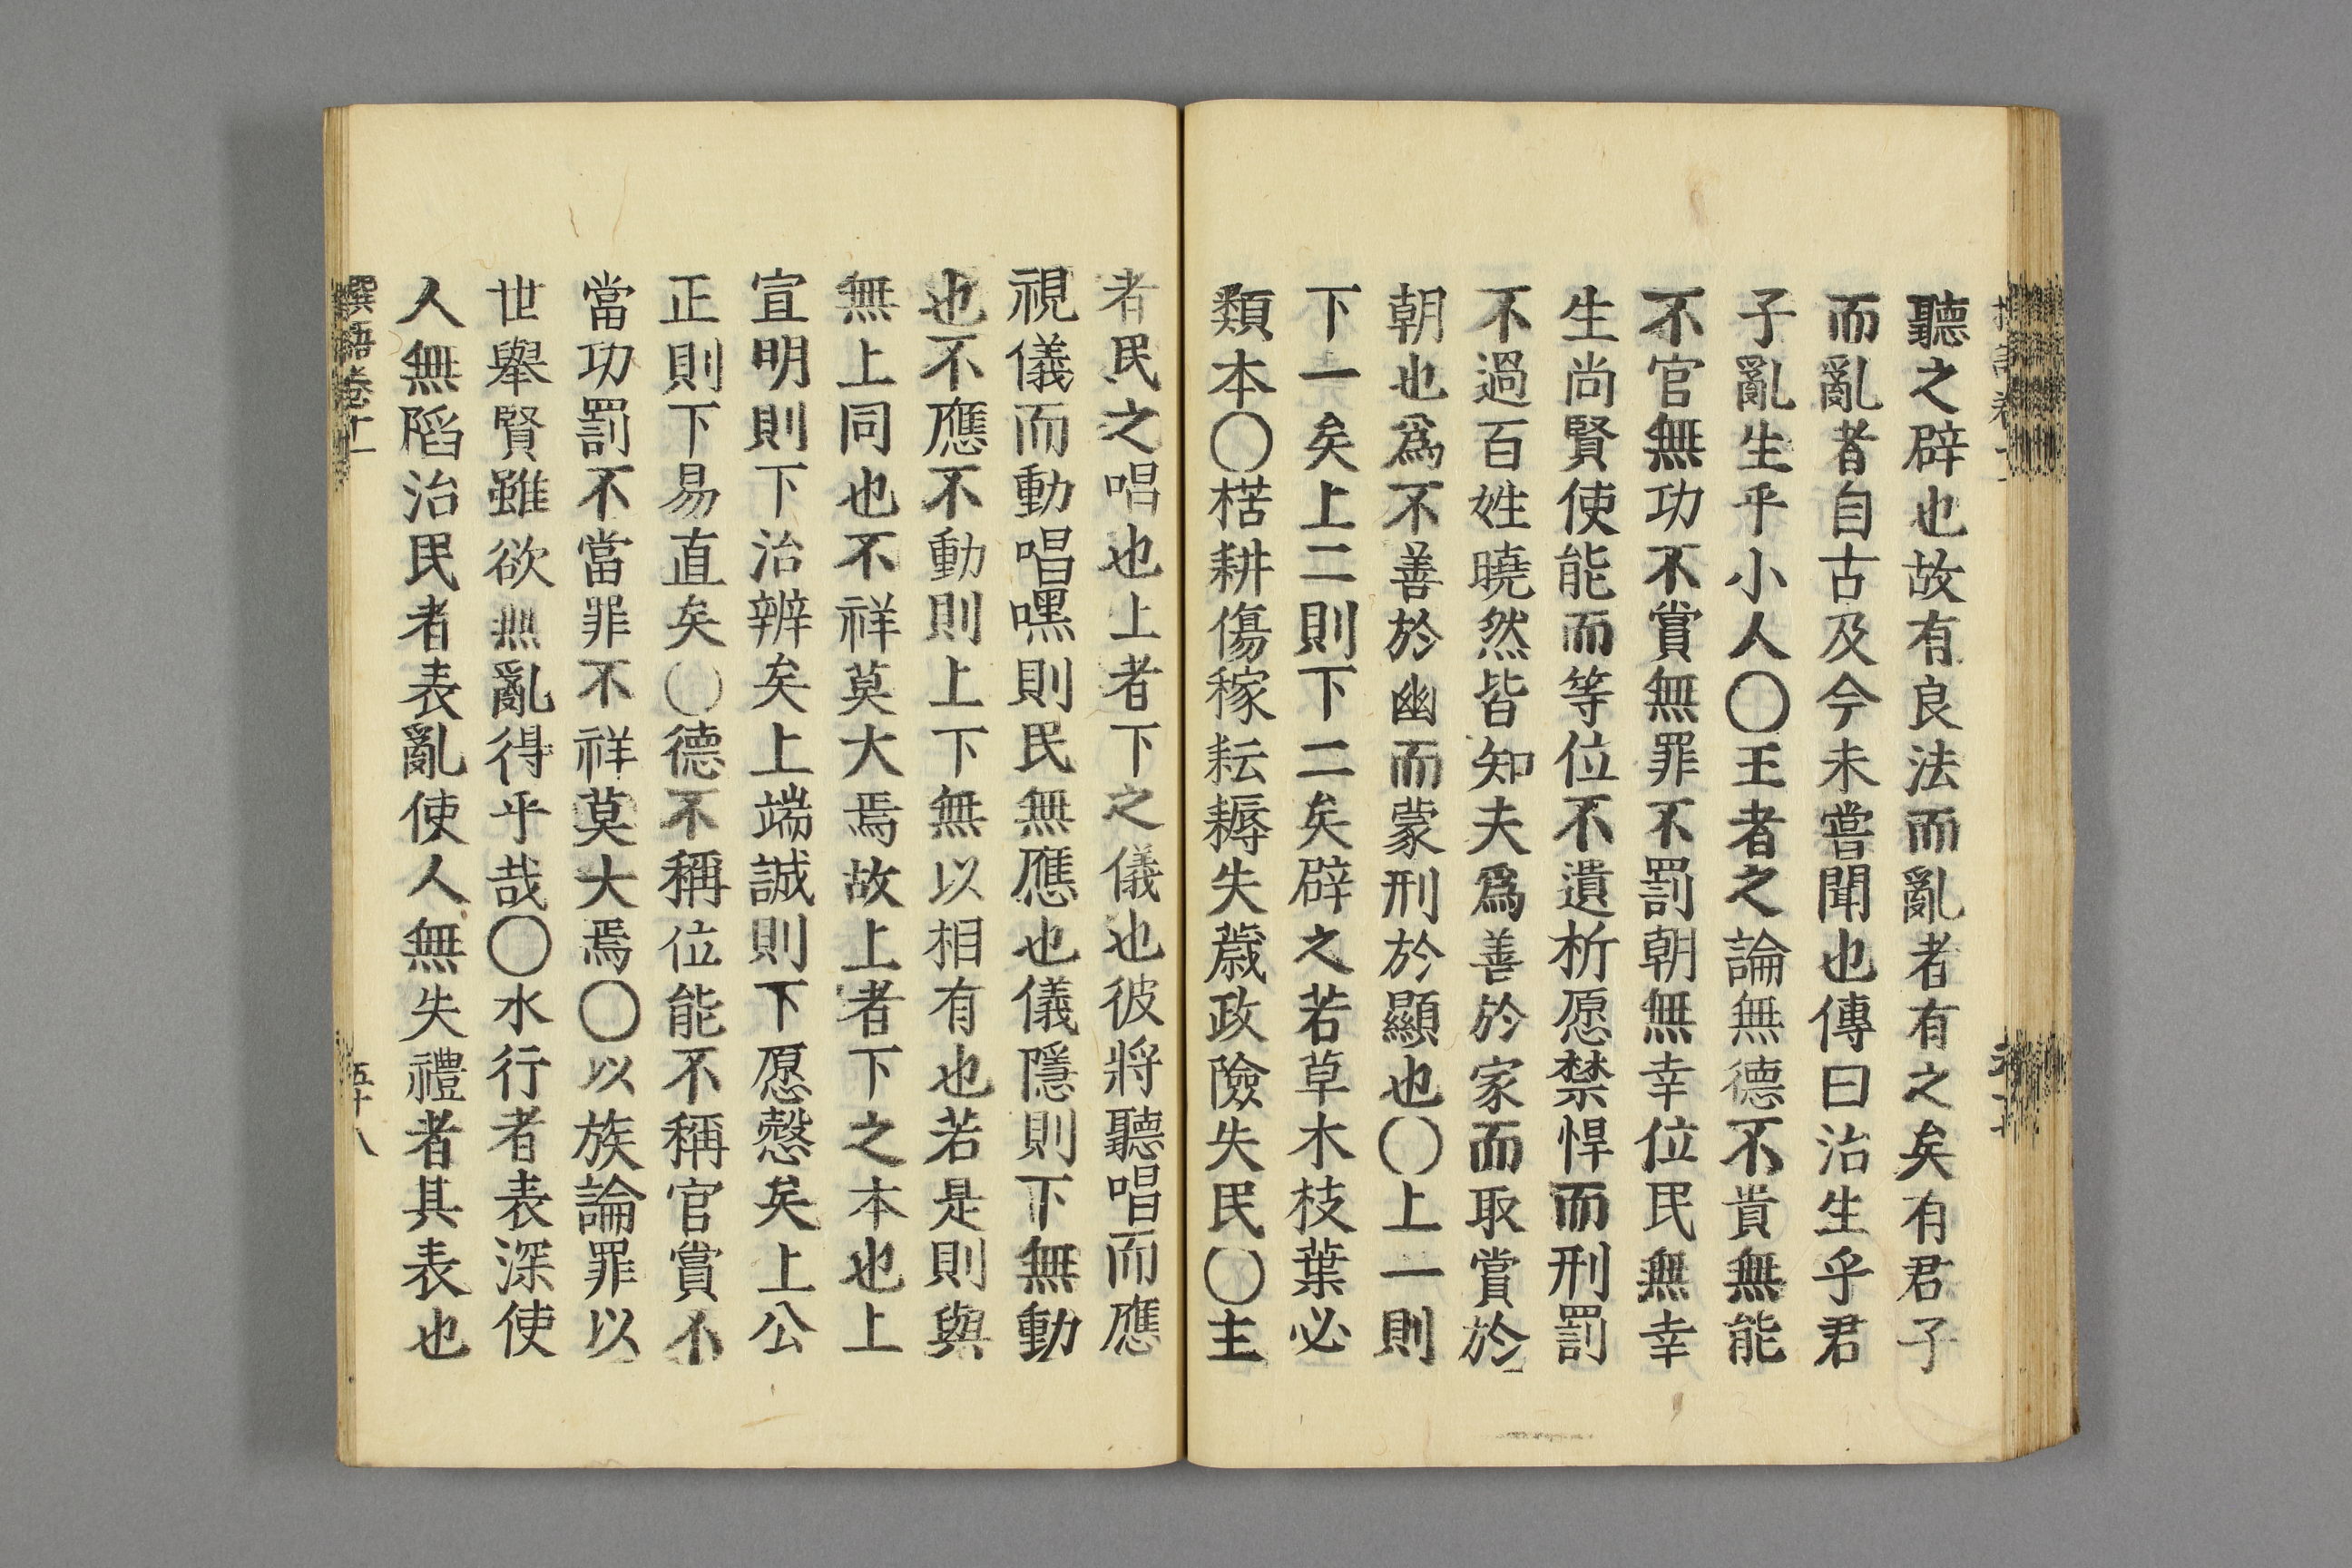 聽之辟也故有良法而亂者有之矣有君子
而亂者自古及今未嘗聞也傳曰治生乎君
子亂生乎小人〇王者之論無德不貴無能
不官無功不賞無罪不罰朝無幸位民無幸
生尚賢使能而等位不遺析愿禁悍而刑罰
不過百姓曉然皆知夫爲善於家而取賞於
朝也爲不善於幽而蒙刑於顯也〇上一則
下一矣上二則下二矣辟之若草木枝葉必
類本〇楛耕傷稼耘耨失薉政險失民〇主
者民之唱也上者下之儀也彼將聽唱而應
視儀而動唱嘿則民無應也儀隱則下無動
也不應不動則上下無以相有也若是則與
無上同也不祥莫大焉故上者下之本也上
宣明則下治辨矣上端誠則下愿愨矣上公
正則下易直矣〇德不稱位能不稱官賞不
當功罰不當罪不祥莫大焉〇以族論罪以
世舉賢雖欲無亂得乎哉〇水行者表深使
人無陷治民者表亂使人無失禮者其表也
撰語卷十一
五十八